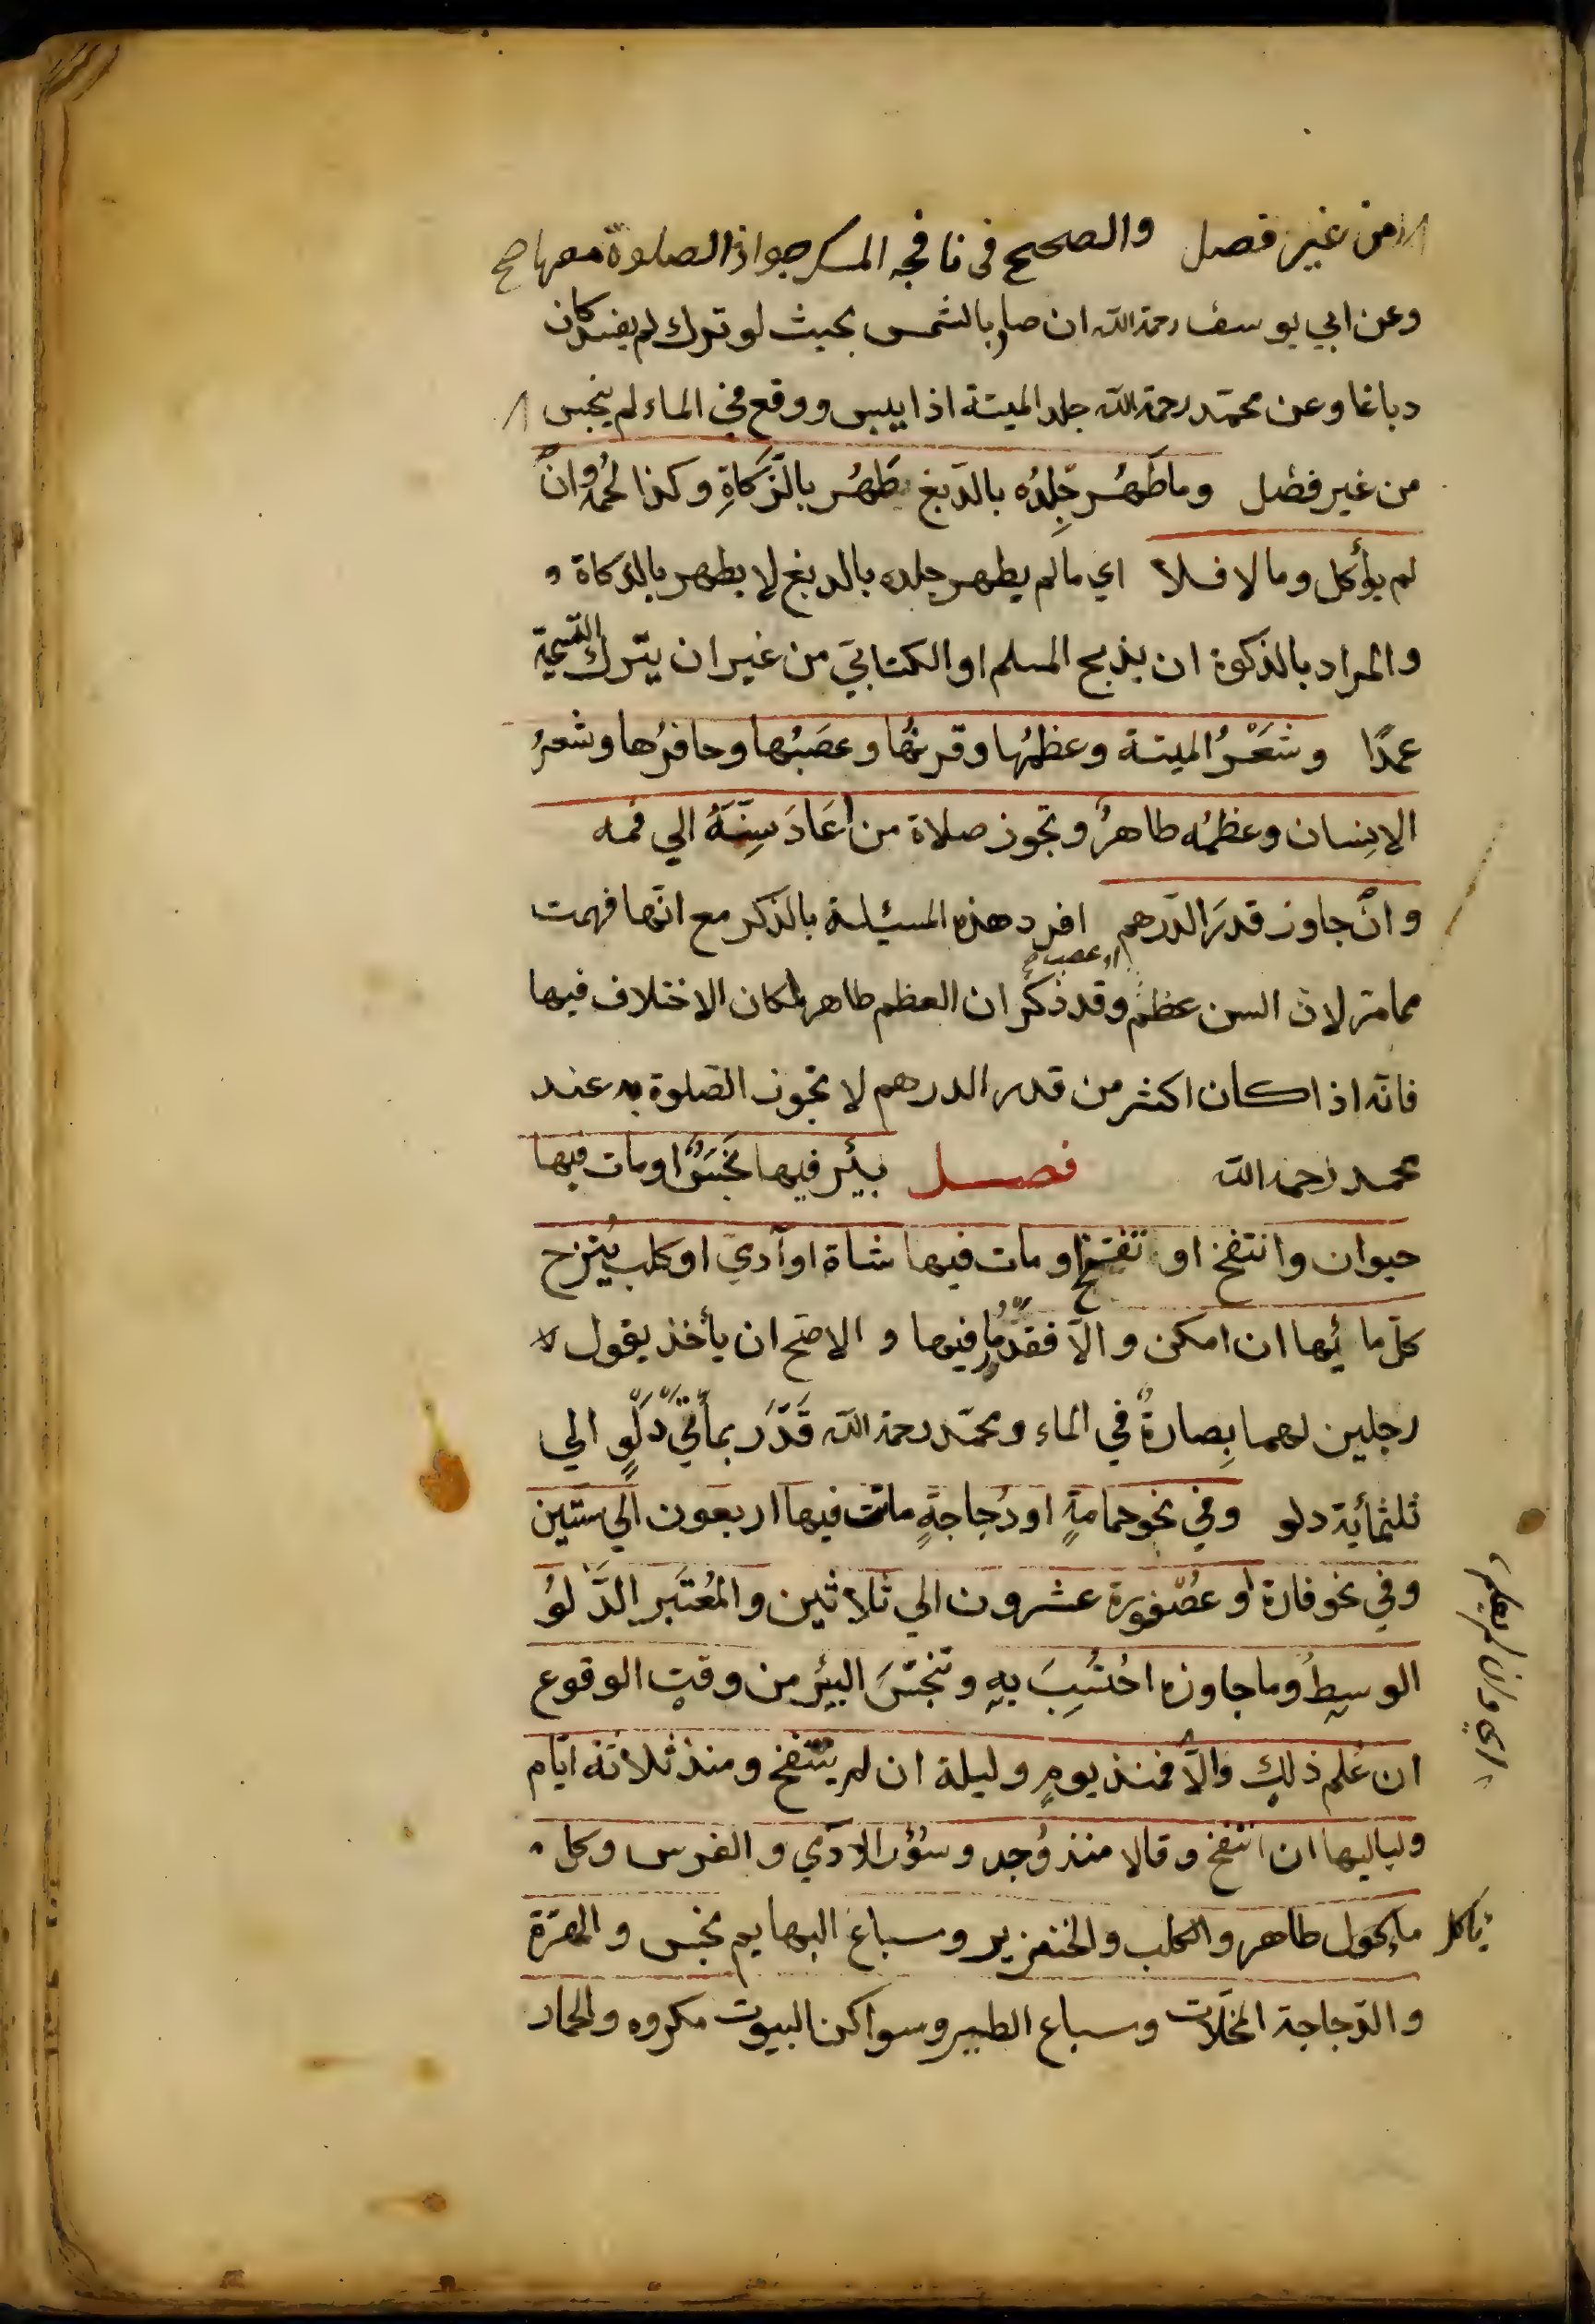 من غير فصل والصحيح فى نافجه المسك جواز الصلوة معها صح
وعن ابي يوسف رحمة الله ان صار بالشمس بحيث لو ترك لم يفسد كان
دباغا وعن محمّد رحمة الله جلد الميتة اذا يبس ووقع في الماء لم ينجس
من غير فصْل وما طَهُر جِلدُه بالدّبغ يَطْهُر بالذّكاةِ وكذا لحمُه وانْ
لم يؤكل وما لا فلا اي ما لم يطهر جلده بالدبغ لا يطهر بالذكاة و
والمراد بالذكوة ان يذبح المسلم او الكتابيّ من غير ان يترك التسمية
عمدًا وشَعْرُ الميتة وعظمُها وقرنُها وعصَبُها وحافرُها وشعرُ
الانِسان وعظمُه طاهرٌ وتجوز صلاة من اَعَادَ سِنَّهُ الي فمه
وانْ جاوز قدرَ الدّرهم افرد هذه المسئلة بالذكر مع انّها فهمت
او عصب صح
ممامرّ لانّ السن عظم وقد ذكر ان العظم طاهر لمكان الاختلاف فيها
فانّه اذا كان اكثر من قدر الدرهم لا تجوز الصّلوة به عند
محمد رحمه الله فصل بيئر فيها نجَسٌ او مات فيها
حيوان وانتفخ او تفسّخ او مات فيها شاة او آدميّ او كلب يُنزح
كلّ مائها ان امكن والّا فقدّر ما فيها و الاصّح ان يأخذ بقول
رجلين لهما بِصارةٌ في الماء ومحمّد رحمة الله قَدَّرَ بمأتيّ دلوٍ الي
ثلثمأية دلو وفي نحو حمامةٍ او دُجاجةٍ ماتت فيها اربعون الي ستّين
وفي نحو فارة او عصْفورة عشرون الي ثلاثين والمُعتَبر الدَّلوُ
الوسطُ وما جاوزه احُتُسِبَ بهِ وتنجّسَ البئر من وقتِ الوقوع
ان عُلم ذلك والّا فمنذ يومٍ وليلة ان لم ينتفخ ومنذ ثلاثة ايّام
ولياليها ان انتفخ وقالا منذ وُجد وسُؤر الادّمي والفرس وكل
يأكل مأكول طاهر والكلب والخنزير وسباع البهايم نجس والهرّة
والدّجاجة المخلّات وسباع الطير وسواكن البيوت مكروه والحمار
اي وان لم يعلم